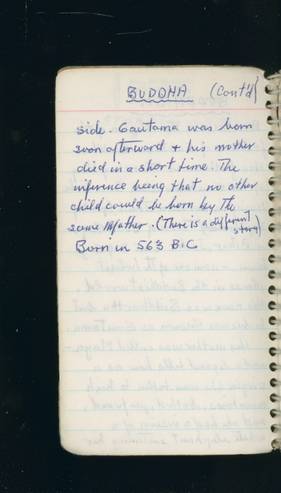 BUDDHA (Cont'd)
side. Gautama was born
soon afterward & his mother
died in a short time. The
inference being that no other
child could be born by the
same Mother. (There is a different
story)
Born in 563 B.C